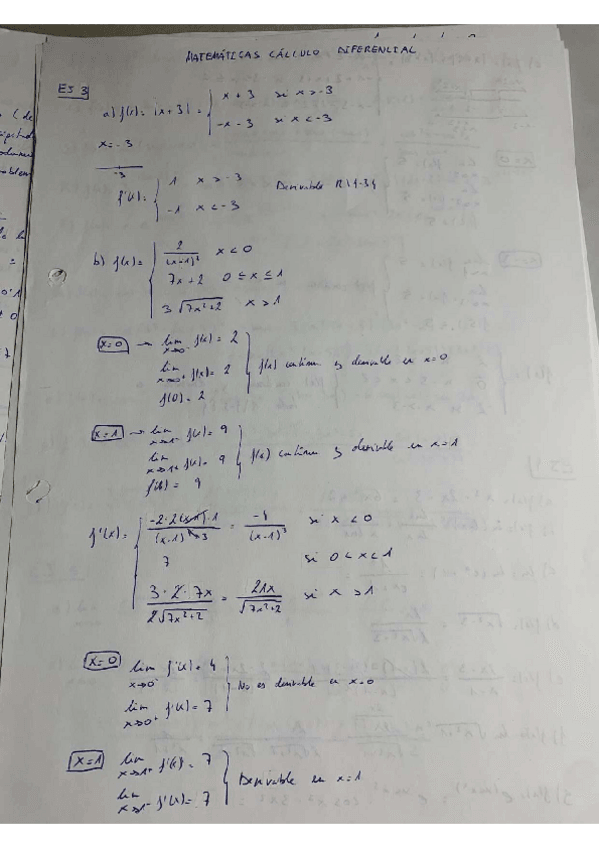 MATEMÁTICAS CÁLCULO DIFERENCIAL
EJ 3
a) f(x) = |x+3| = { x + 3 si x > -3
-x - 3 si x < -3
x = -3
-3
f'(x) = { 1 x > -3 Derivable R\{-3}
-1 x < -3
b) f(x) = { 2/(x-1)² x < 0
7x+2 0 ≤ x ≤ 1
3√7x²+2 x > 1
x=0 → lim x→0⁻ f(x) = 2
lim x→0⁺ f(x) = 2 } f(x) continua es derivable en x=0
f(0) = 2
x=1 → lim x→1⁻ f(x) = 9
lim x→1⁺ f(x) = 9 } f(x) continua es derivable en x=1
f(1) = 9
f'(x) = { -2·2(x-1)·1/(x-1)⁴3 = -4/(x-1)³ si x < 0
7 si 0 < x < 1
3·2·7x/2√7x²+2 = 21x/√7x²+2 si x > 1
x=0 lim x→0⁻ f'(x) = 4
lim x→0⁺ f'(x) = 7 } No es derivable en x=0
x=1 lim x→1⁺ f'(x) = 7
lim x→1⁻ f'(x) = 7 } Derivable en x=1